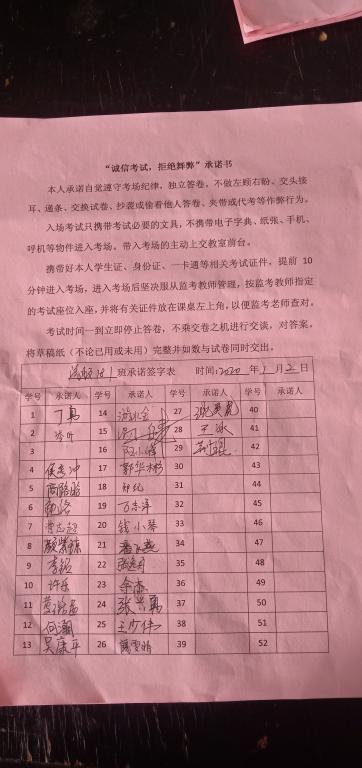 “诚信考试，拒绝舞弊”承诺书
本人承诺自觉遵守考场纪律，独立答卷，不做左顾右盼、交头接
耳、递条、交换试卷、抄袭或偷看他人答卷、夹带或代考等作弊行为。
入场考试只携带考试必要的文具，不携带电子字典、纸张、手机、
呼机等物件进入考场。带入考场的主动上交教室前台。
携带好本人学生证、身份证、一卡通等相关考试证件，提前 10
分钟进入考场，进入考场后坚决服从监考教师管理，按监考教师指定
的考试座位入座，并将有关证件放在课桌左上角，以便监考老师查对。
考试时间一到立即停止答卷，不乘交卷之机进行交谈，对答案，
将草稿纸（不论已用或未用）完整并如数与试卷同时交出。
班承诺签字表 时间:2020 年1月2日
学号 承诺人 学号 承诺人 学号 承诺人 学号 承诺人
1 丁真 14 27 40
2 15 28 41
3 16 29 42
4 17 郭华彬 30 43
5 18 郑纪 31 44
6 19 万志泽 32 45
7 20 钱小琴 33 46
8 21 34 47
9 李银 22 35 48
10 许乐 23 余杰 36 49
11 24 张兴勇 37 50
12 何潮 25 王少伟 38 51
13 吴康平 26 39 52